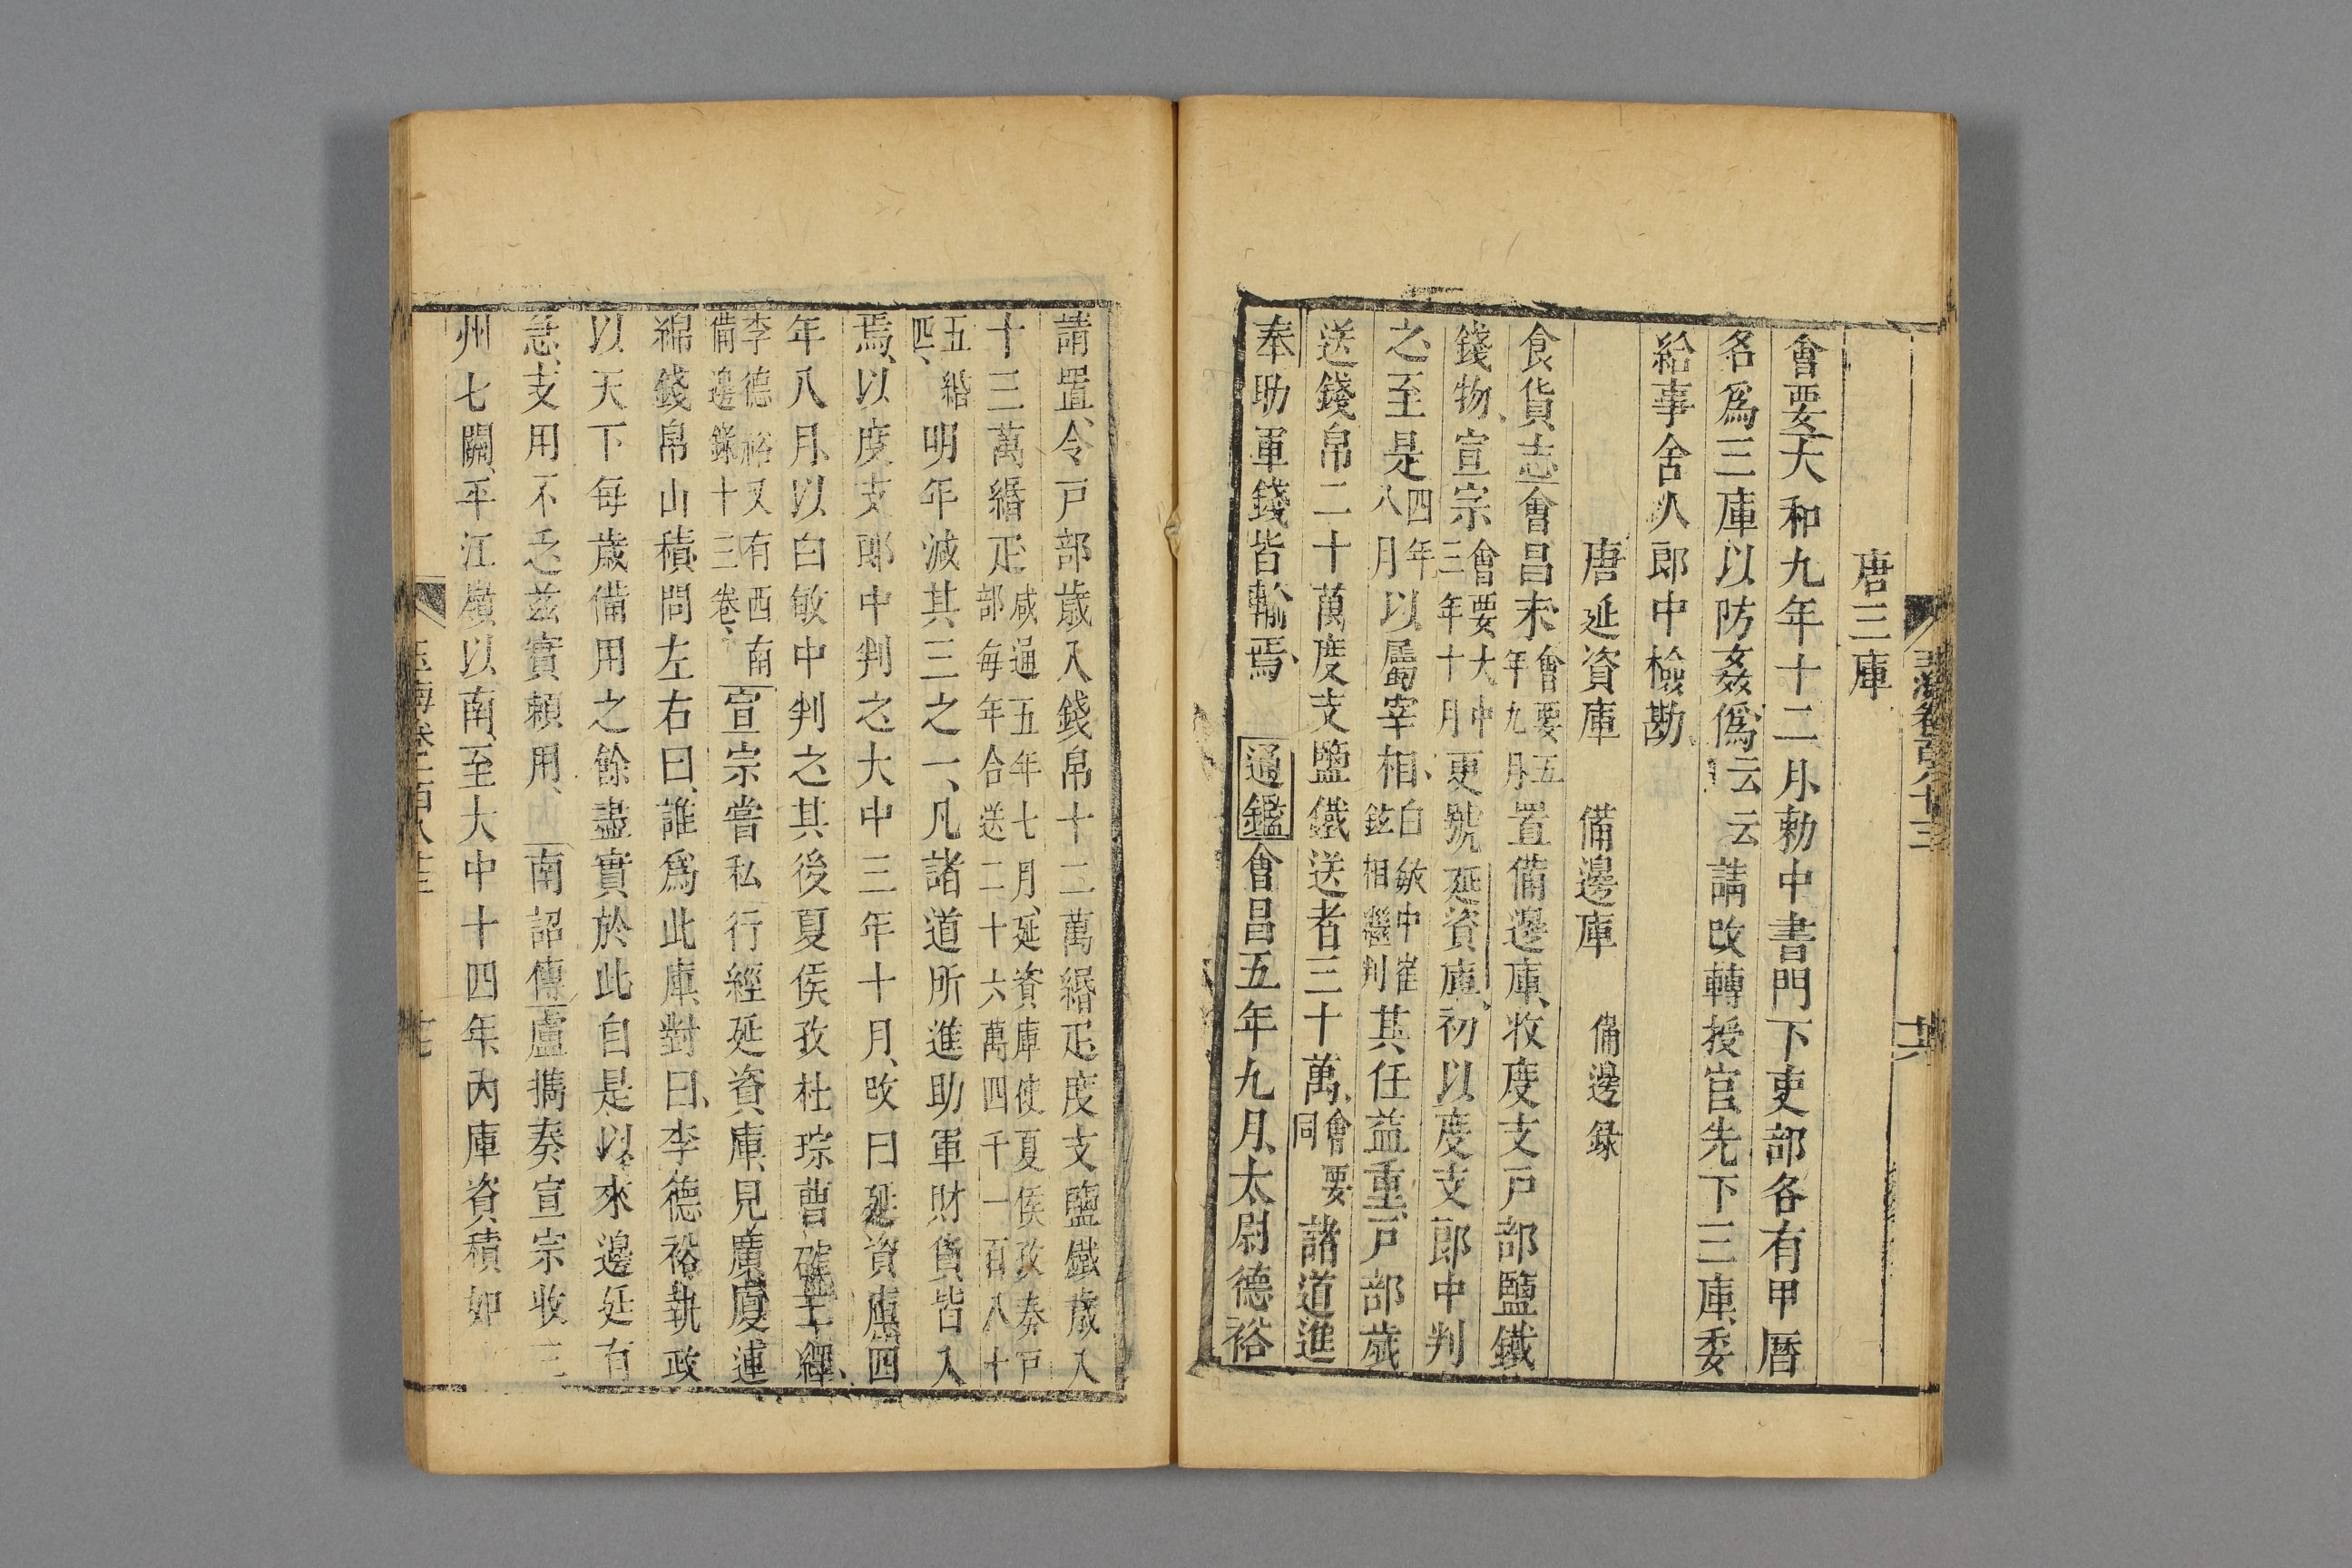 玉海卷百八十三 十六
唐三庫
會要大和九年十二月勑中書門下吏部各有甲曆
名爲三庫以防姦僞云云請改轉授官先下三庫委
給事舍人郎中檢勘
唐延資庫 備邊庫 備邊録
食貨志會昌末會要五年九月置備邊庫收度支戸部鹽鐵
錢物宣宗會要大中三年十月更號延資庫初以度支郎中判
之至是四年八月以屬宰相白敏中崔鉉相繼判其任益重戸部歲
送錢帛二十萬度支鹽鐵送者三十萬會要同諸道進
奉助軍錢皆輸焉 通鑑會昌五年九月太尉德裕
請置令戸部歲入錢帛十二萬緡疋度支鹽鐵歲入
十三萬緡疋咸通五年七月延資庫使夏侯孜奏戸部每年合送二十六萬四千一百八十
五緡四明年減其三之一凡諸道所進助軍財貨皆入
焉以度支郎中判之大中三年十月改曰延資庫四
年八月以白敏中判之其後夏侯孜杜琮曹確王鐸
李德裕又有西南備邊錄十三卷宣宗嘗私行經延資庫見廣廈連
綿錢帛山積問左右曰誰爲此庫對曰李德裕執政
以天下每歲備用之餘盡實於此自是以來邊延有
急支用不乏兹實賴用南詔傳盧攜奏宣宗收三
州七關平江嶺以南至大中十四年内庫資積如
玉海卷一百八十三 十七